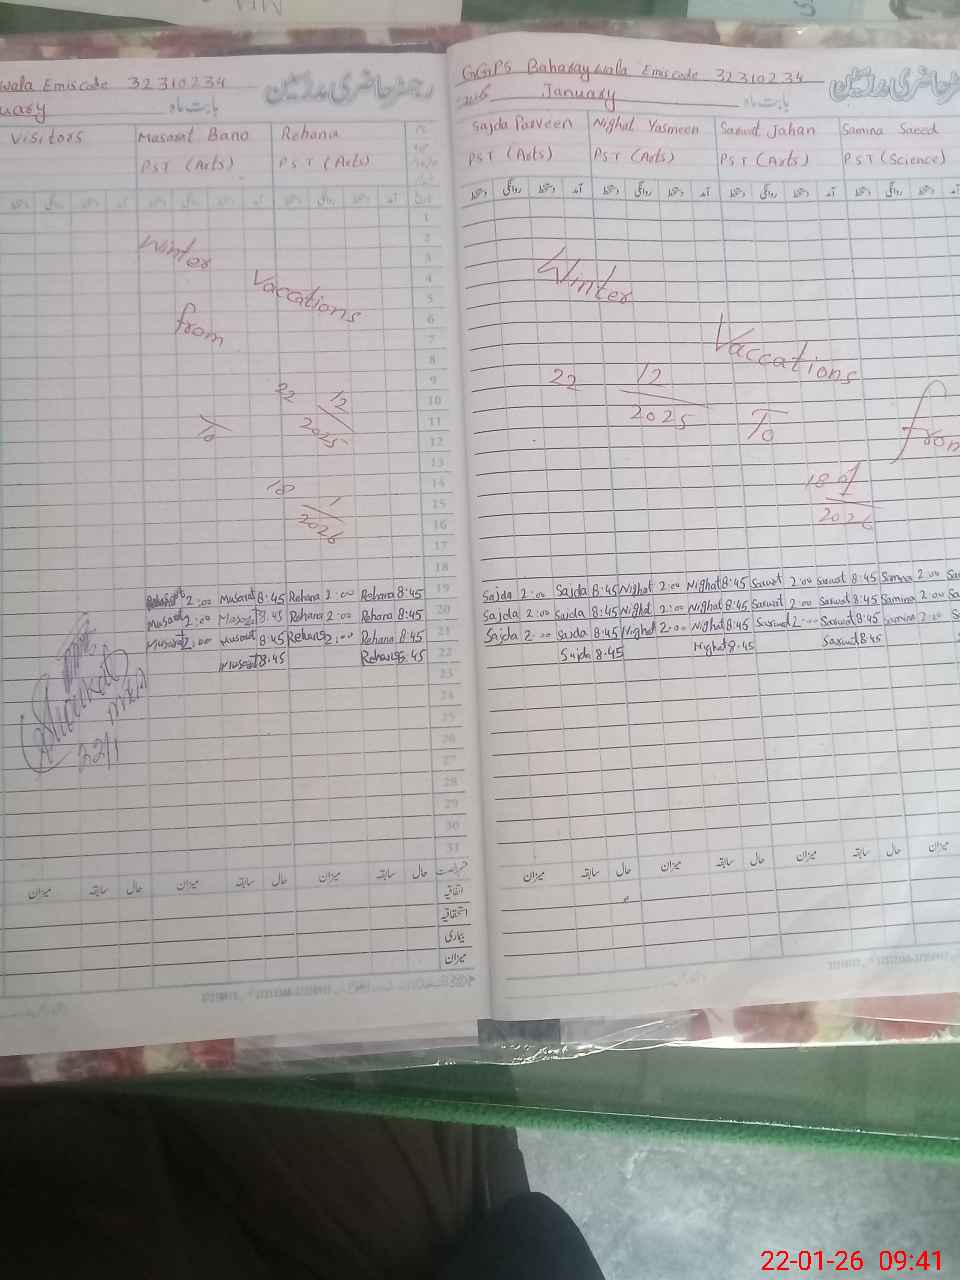 wala Emiscode 32310234
رجسٹر حاضری مدرسین
uary
بابت ماہ
Visitors
Masarat Bano
Rehana
PST (Arts)
PST (Arts)
1
2
Winter
3
Vaccations
4
5
from
6
7
8
22 12
9
10
To
2025
11
12
13
18 1
14
15
2026
16
17
18
2:00 Musarat 8:45 Rehana 2:00 Rehana 8:45
19
Musarat 2:00 Musarat 8:45 Rehana 2:00 Rehana 8:45
20
Musarat 2:00 Musarat 8:45 Rehana 2:00 Rehana 8:45
21
Musarat 8:45 Rehana 8:45
22
23
24
22/1
25
26
27
28
29
30
31
میزان سابقہ حال میزان سابقہ حال میزان سابقہ حال
اتفاقیہ
استحقاقیہ
بیماری
میزان
GGPS Baharaywala Emiscode 32310234
رجسٹر حاضری مدرسین
January
بابت ماہ
Sajda Parveen Nighat Yasmeen Sarwat Jahan Samina Saeed
PST (Arts) PST (Arts) PST (Arts) PST (Science)
Winter
Vaccations
22 12
2025
To
from
18 01
2026
Sajda 2:00 Sajda 8:45 Nighat 2:00 Nighat 8:45 Sarwat 2:00 Sarwat 8:45 Samina 2:00 Sa
Sajda 2:00 Sajda 8:45 Nighat 2:00 Nighat 8:45 Sarwat 2:00 Sarwat 8:45 Samina 2:00 Sa
Sajda 2:00 Sajda 8:45 Nighat 2:00 Nighat 8:45 Sarwat 2:00 Sarwat 8:45 Samina 2:00 S
Sajda 8:45 Nighat 8:45 Sarwat 8:45
میزان سابقہ حال میزان سابقہ حال میزان سابقہ حال میزان
22-01-26 09:41